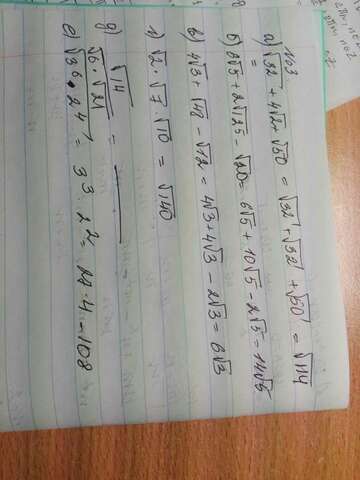 №3
а) √32 + 4√2 + √50 = √32 + √32 + √50 = √114
б) 6√5 + 2√125 - √20 = 6√5 + 10√5 - 2√5 = 14√5
в) 4√3 + √48 - √12 = 4√3 + 4√3 - 2√3 = 6√3
г) √2 · √7 · √10 = √140
д) √14 / √6 · √21 =
е) √3⁶ · 2⁴ = 3³ · 2² = 27 · 4 = 108